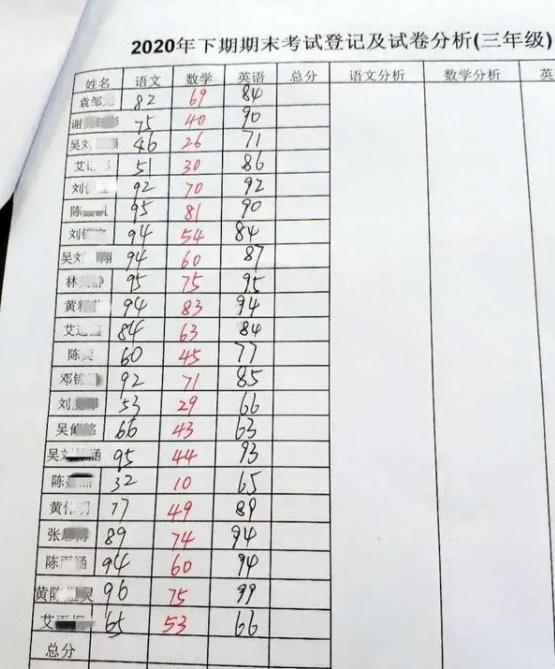 2020年下期期末考试登记及试卷分析(三年级)
姓名 语文 数学 英语 总分 语文分析 数学分析 英
袁邹 82 69 84
谢 75 40 90
吴刘 46 26 71
艾 51 30 86
刘 92 70 92
陈 95 81 90
刘 94 54 84
吴刘 翔 94 60 87
林 静 95 75 95
黄 94 83 94
艾 84 63 84
陈 60 45 77
邓 92 71 85
刘 53 29 66
吴 66 43 63
吴刘 涵 95 44 93
陈 32 10 65
黄 77 49 89
张 89 74 94
陈 涵 94 60 94
黄陈 灵 96 75 99
艾 65 53 66
总分